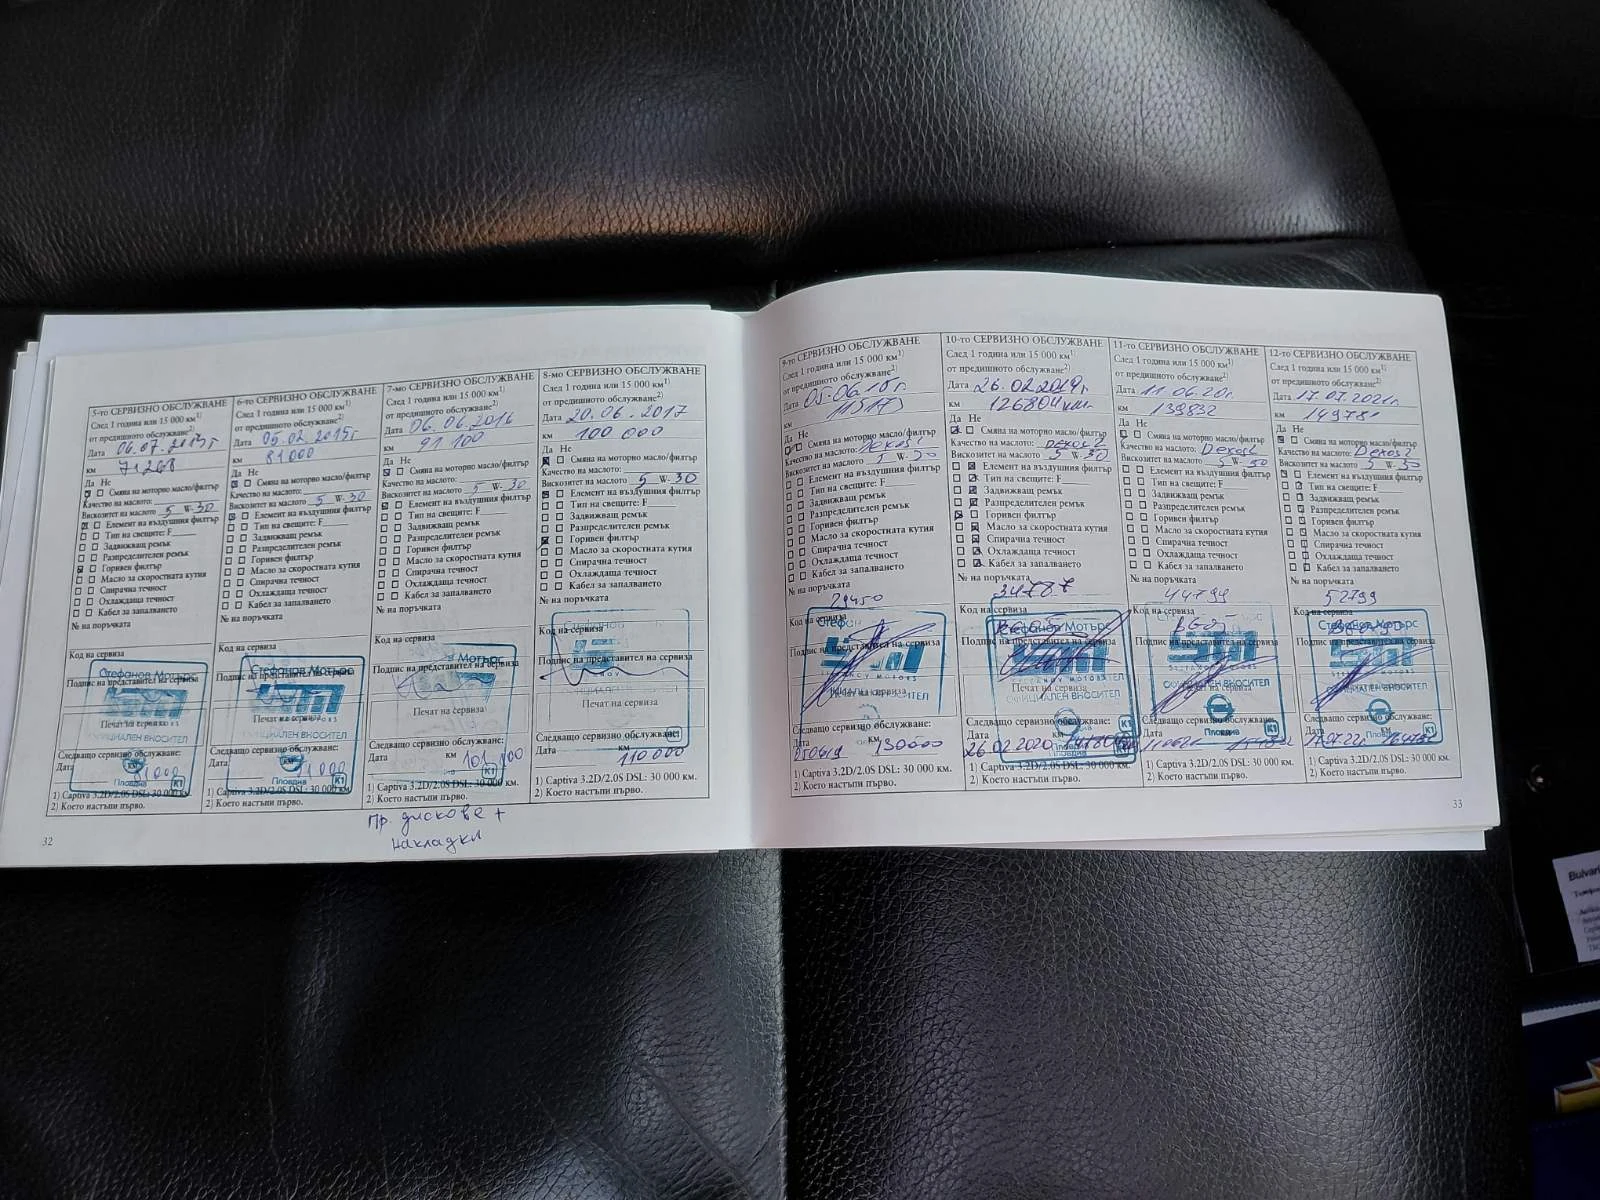 5-то СЕРВИЗНО ОБСЛУЖВАНЕ
След 1 година или 15 000 км1)
от предишното обслужване2)
Дата 06.07.2013г
км 71268
Да Не
Смяна на моторно масло/филтър
Качество на маслото:
Вискозитет на маслото 5 W- 30
Елемент на въздушния филтър
Тип на свещите: F
Задвижващ ремък
Разпределителен ремък
Горивен филтър
Масло за скоростната кутия
Спирачна течност
Охлаждаща течност
Кабел за запалването
№ на поръчката
Код на сервиза
Стефанов Мотърс
Подпис на представител на сервиза
Печат на сервиза
ОФИЦИАЛЕН ВНОСИТЕЛ
Следващо сервизно обслужване:
Дата
Пловдив K1
1) Captiva 3.2D/2.0S DSL: 30 000 км.
2) Което настъпи първо.
32
6-то СЕРВИЗНО ОБСЛУЖВАНЕ
След 1 година или 15 000 км1)
от предишното обслужване2)
Дата 05.02.2015г
км 81000
Да Не
Смяна на моторно масло/филтър
Качество на маслото:
Вискозитет на маслото 5 W- 30
Елемент на въздушния филтър
Тип на свещите: F
Задвижващ ремък
Разпределителен ремък
Горивен филтър
Масло за скоростната кутия
Спирачна течност
Охлаждаща течност
Кабел за запалването
№ на поръчката
Код на сервиза
Стефанов Мотърс
Подпис на представител на сервиза
Печат на сервиза
ОФИЦИАЛЕН ВНОСИТЕЛ
Следващо сервизно обслужване:
Дата
Пловдив K1
1) Captiva 3.2D/2.0S DSL: 30 000 км.
2) Което настъпи първо.
7-мо СЕРВИЗНО ОБСЛУЖВАНЕ
След 1 година или 15 000 км1)
от предишното обслужване2)
Дата 06.06.2016
км 91 100
Да Не
Смяна на моторно масло/филтър
Качество на маслото:
Вискозитет на маслото 5 W- 30
Елемент на въздушния филтър
Тип на свещите: F
Задвижващ ремък
Разпределителен ремък
Горивен филтър
Масло за скоростната кутия
Спирачна течност
Охлаждаща течност
Кабел за запалването
№ на поръчката
Код на сервиза
Подпис на представител на сервиза
Печат на сервиза
Следващо сервизно обслужване:
Дата км 101 100
K1
1) Captiva 3.2D/2.0S DSL: 30 000 км.
2) Което настъпи първо.
Пр. дискове +
накладки
8-мо СЕРВИЗНО ОБСЛУЖВАНЕ
След 1 година или 15 000 км1)
от предишното обслужване2)
Дата 20.06.2017
км 100 000
Да Не
Смяна на моторно масло/филтър
Качество на маслото:
Вискозитет на маслото 5 W- 30
Елемент на въздушния филтър
Тип на свещите: F
Задвижващ ремък
Разпределителен ремък
Горивен филтър
Масло за скоростната кутия
Спирачна течност
Охлаждаща течност
Кабел за запалването
№ на поръчката
Код на сервиза
Подпис на представител на сервиза
Печат на сервиза
Следващо сервизно обслужване:
Дата км 110 000
1) Captiva 3.2D/2.0S DSL: 30 000 км.
2) Което настъпи първо.
9-то СЕРВИЗНО ОБСЛУЖВАНЕ
След 1 година или 15 000 км1)
от предишното обслужване2)
Дата
км
Да Не
Смяна на моторно масло/филтър
Качество на маслото:
Вискозитет на маслото
Елемент на въздушния филтър
Тип на свещите: F
Задвижващ ремък
Разпределителен ремък
Горивен филтър
Масло за скоростната кутия
Спирачна течност
Охлаждаща течност
Кабел за запалването
№ на поръчката
29450
Код на сервиза
Подпис на представител на сервиза
Печат на сервиза
Следващо сервизно обслужване:
Дата км
130000
1) Captiva 3.2D/2.0S DSL: 30 000 км.
2) Което настъпи първо.
10-то СЕРВИЗНО ОБСЛУЖВАНЕ
След 1 година или 15 000 км1)
от предишното обслужване2)
Дата 26.02.2019г
км 126804км
Да Не
Смяна на моторно масло/филтър
Качество на маслото: Dexos2
Вискозитет на маслото 5 W- 30
Елемент на въздушния филтър
Тип на свещите: F
Задвижващ ремък
Разпределителен ремък
Горивен филтър
Масло за скоростната кутия
Спирачна течност
Охлаждаща течност
Кабел за запалването
№ на поръчката
34787
Код на сервиза
Стефанов Мотърс
Подпис на представител на сервиза
ОФИЦИАЛЕН ВНОСИТЕЛ
Следващо сервизно обслужване:
26.02.2020
Пловдив K1
1) Captiva 3.2D/2.0S DSL: 30 000 км.
2) Което настъпи първо.
11-то СЕРВИЗНО ОБСЛУЖВАНЕ
След 1 година или 15 000 км1)
от предишното обслужване2)
Дата 11.06.20г
км 139832
Да Не
Смяна на моторно масло/филтър
Качество на маслото: Dexos2
Вискозитет на маслото 5 W- 30
Елемент на въздушния филтър
Тип на свещите: F
Задвижващ ремък
Разпределителен ремък
Горивен филтър
Масло за скоростната кутия
Спирачна течност
Охлаждаща течност
Кабел за запалването
№ на поръчката
44799
Код на сервиза
Подпис на представител на сервиза
ОФИЦИАЛЕН ВНОСИТЕЛ
Печат на сервиза
Следващо сервизно обслужване:
Дата
K1
1) Captiva 3.2D/2.0S DSL: 30 000 км.
2) Което настъпи първо.
12-то СЕРВИЗНО ОБСЛУЖВАНЕ
След 1 година или 15 000 км1)
от предишното обслужване2)
Дата 17.07.2021г
км 149781
Да Не
Смяна на моторно масло/филтър
Качество на маслото: Dexos2
Вискозитет на маслото 5 W- 30
Елемент на въздушния филтър
Тип на свещите: F
Задвижващ ремък
Разпределителен ремък
Горивен филтър
Масло за скоростната кутия
Спирачна течност
Охлаждаща течност
Кабел за запалването
№ на поръчката
52799
Код на сервиза
Стефанов Мотърс
Подпис на представител на сервиза
ОФИЦИАЛЕН ВНОСИТЕЛ
Печат на сервиза
Следващо сервизно обслужване:
Дата
Пловдив K1
1) Captiva 3.2D/2.0S DSL: 30 000 км.
2) Което настъпи първо.
33